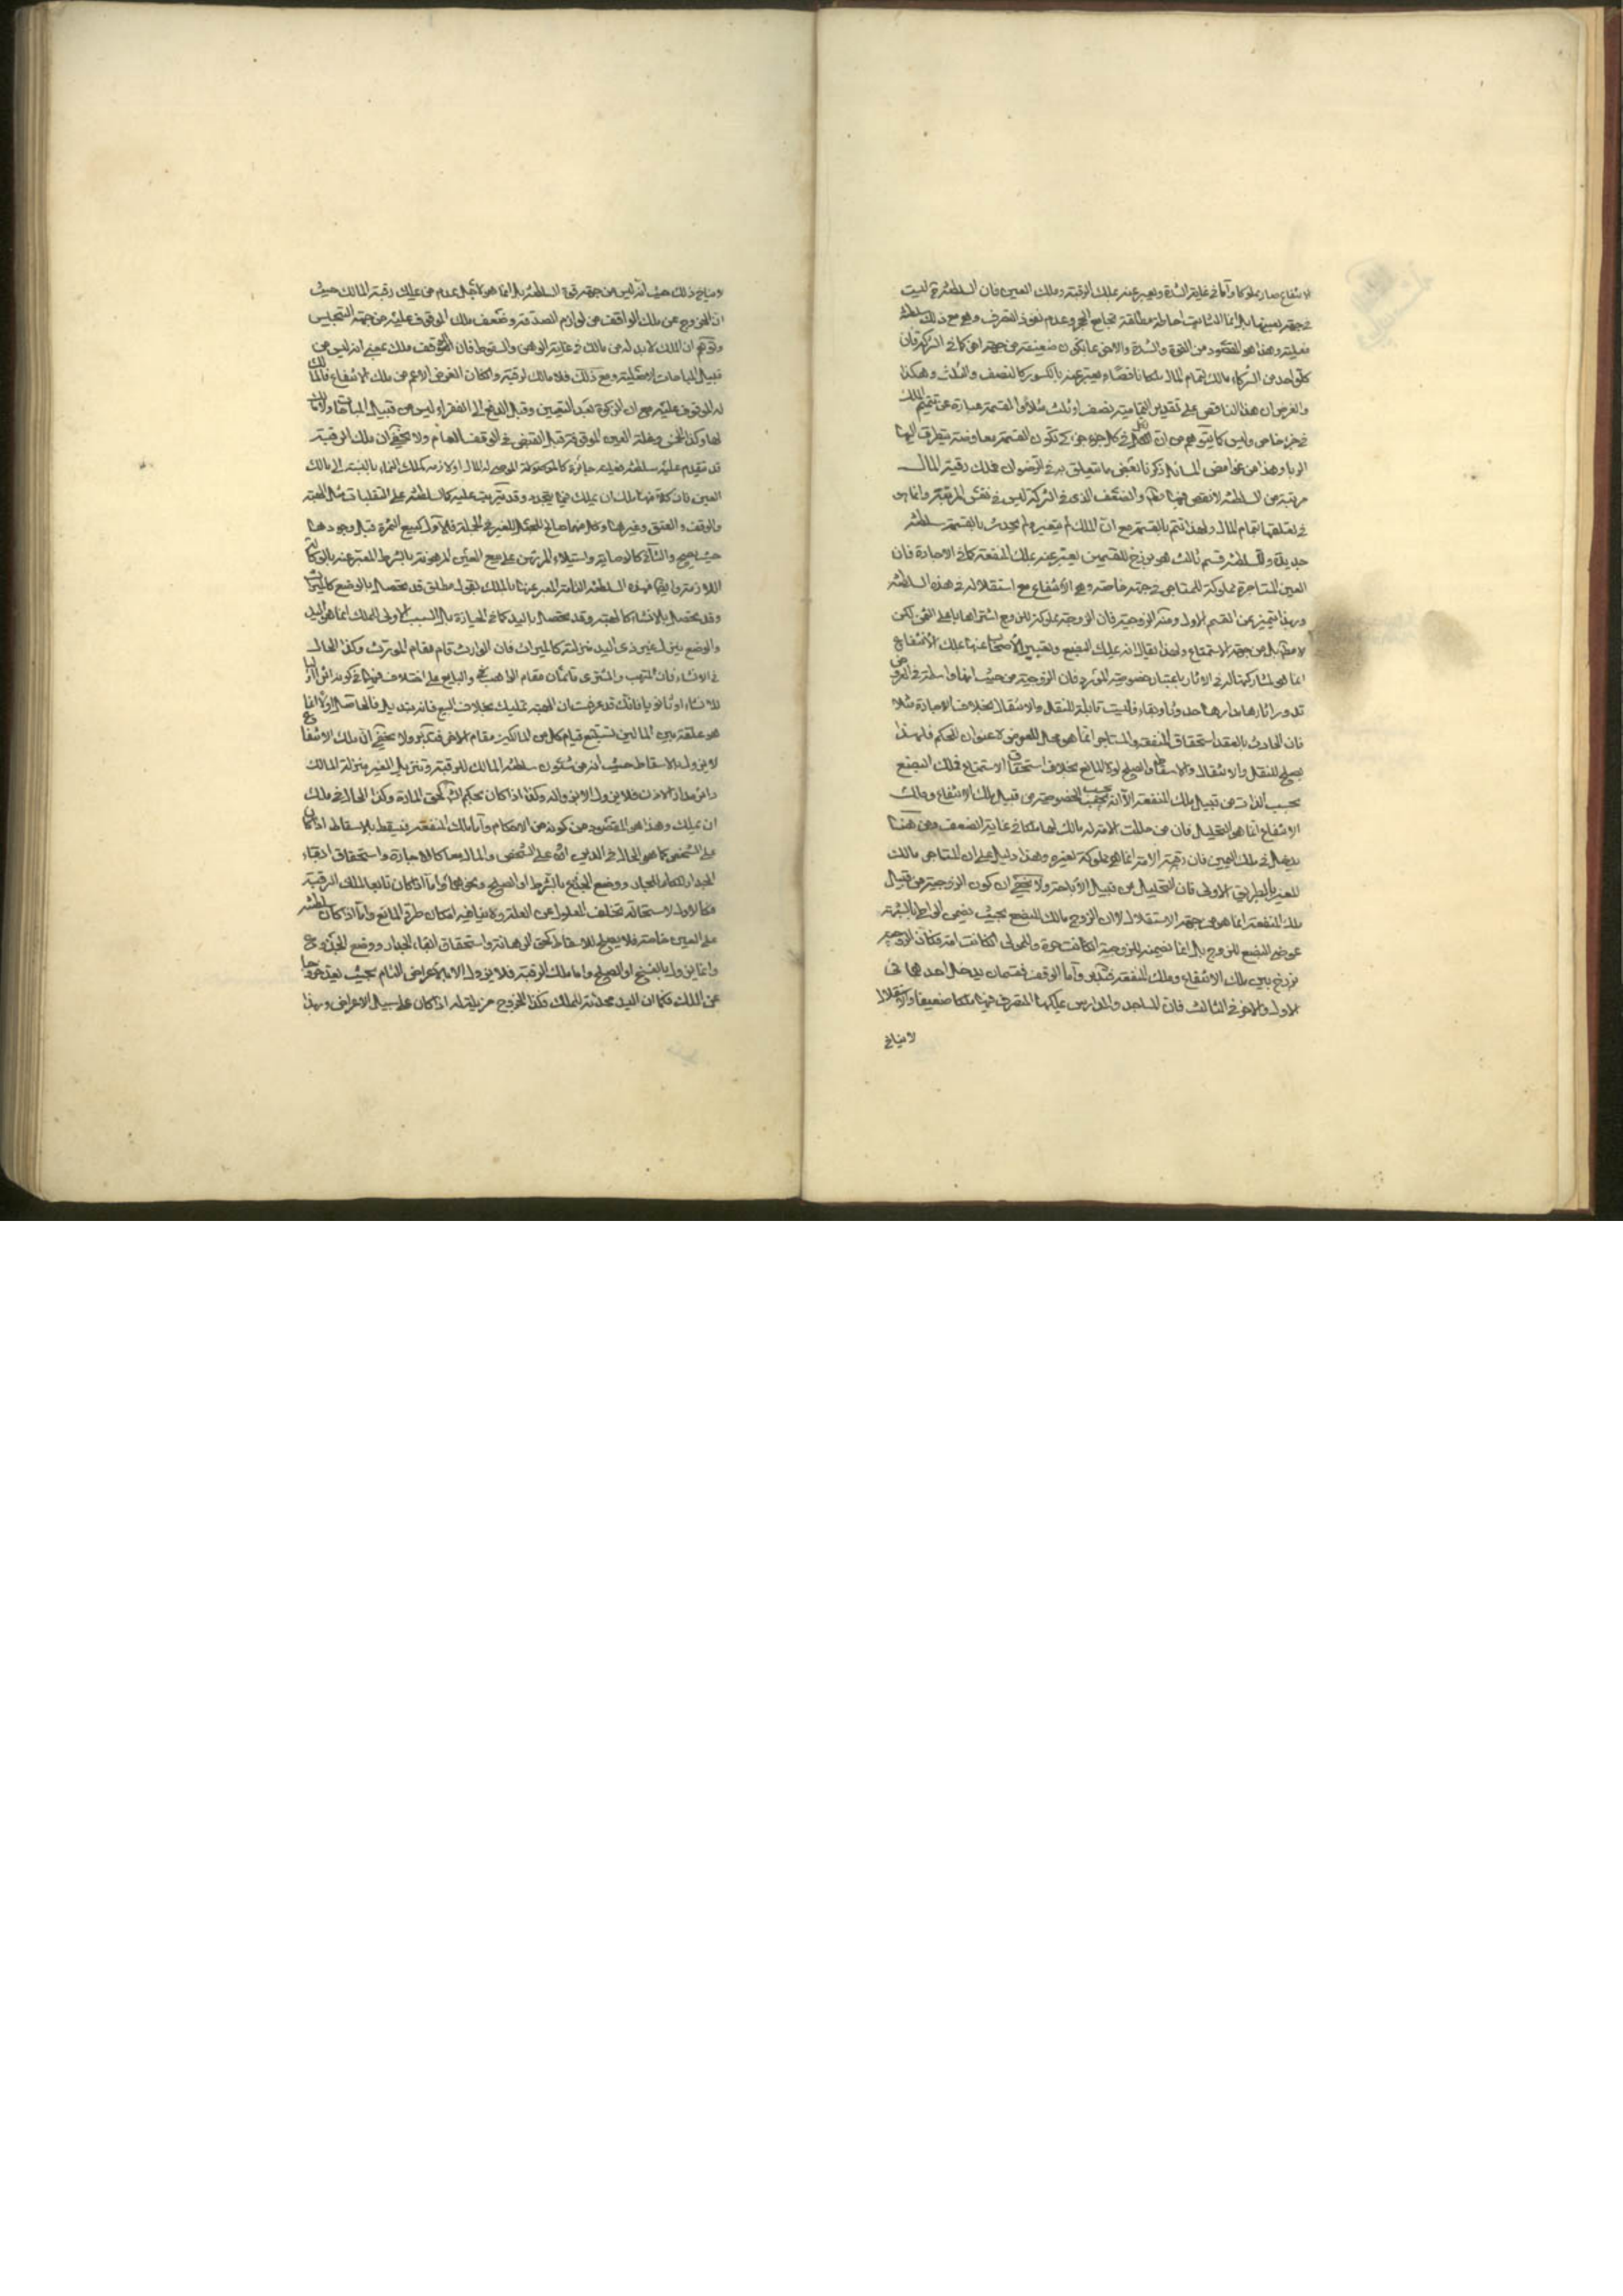 الانتفاع صار مملوكا واما في غاية الشدة ويعبر عنه بملك الرقبة وملك العين فان السلطنة ليست
في جهة بعينها بل انما الثابت احاطة مطلقة تجامع الحجر وعدم نفوذ التصرف وهي مع ذلك سلطنة
فعلية وهذا هو المقصود من القوة والشدة والاخرى ما يكون ضعيفة من جهة اخرى كما في الشركة فان
كل واحد من الشركاء مالك لتمام المال ملكا ناقصا ويعبر عنه بالكسور كالنصف والثلث وهكذا
والغرض ان هذا الناقص على تقدير التمامية نصف او ثلث مثلا والقسمة عبارة عن تتميم الملك
في جزء خاص وليس كما يتوهم من ان الملك في كل جزء جزء كي تكون القسمة معاوضة يتطرق اليها
الربا وهذا من غوامض المسائل ذكرنا بعض ما يتعلق به في الرضوان فملك رقبة المال
مرتبة من السلطنة لا نقص فيها والضعف الذي في الشركة ليس في نفس المرتبة وانما هو
في تعلقها بتمام المال ولهذا تتم بالقسمة مع ان الملك لم يتغير ولم يحدث بالقسمة سلطنة
جديدة وللسلطنة قسم ثالث هو برزخ للقسمين يعبر عنه بملك المنفعة كما في الاجارة فان
العين المستاجرة مملوكة للمستاجر في جهة خاصة وهي الانتفاع مع استقلاله في هذه السلطنة
وبهذا تتميز عن القسم الاول ومنه الزوجية فان الزوجة مملوكة للزوج اشتراها باغلى الثمن لكن
لا مطلقا بل من جهة الاستمتاع ولهذا يقال انه يملك البضع وتعبير الاصحاب عنها بملك الانتفاع
انما هو لمشاركتها له في الاثار باعتبار خصوصية المورد فان الزوجية من حيث انها واسطة في العروض
تدور اثارها مدارها حدوثا وبقاء فليست قابلة للنقل والانتقال بخلاف الاجارة مثلا
فان الحادث بالعقد استحقاق المنفعة والمستاجر انما هو محل للعروض لا عنوان للحكم فلهذا
يصلح للنقل والانتقال والاسقاط والصلح لولا المانع بخلاف استحقاق الاستمتاع فملك البضع
بحسب الذات من قبيل ملك المنفعة الا انه بحسب الخصوصية من قبيل ملك الانتفاع وملك
الانتفاع انما هو التحليل فان من حللت الامة له مالك لها ملكا في غاية الضعف ومن هنا
يدخل في ملك اليمين فان رقبة الامة انما هي مملوكة لغيره وهذا دليل على ان المستاجر مالك
للعين بالطريق الاولى فان التحليل من قبيل الاباحة ولا يخفى ان كون الزوجية من قبيل
ملك المنفعة انما هو من جهة الاستقلال لا ان الزوج مالك للبضع بحيث يضمن الواطئ بالشبهة
عوض البضع للزوج بل انما يضمنه للزوجة ان كانت حرة والمولى ان كانت امة فكان الزوجية
برزخ بين ملك الانتفاع وملك المنفعة فتدبر واما الوقف فقسمان يدخل احدهما في
الاول والاخر في الثالث فان المساجد والمدارس يملكها المتصرف فيها ملكا ضعيفا والاستقلال
لا ينافي
وينافي ذلك حيث انه ليس من جهة قوة السلطنة بل انما هو لاجل عدم من يملك رقبة المالك حيث
ان الخروج عن ملك الواقف من لوازم الصدقة وضعف ملك الموقوف عليه من جهة التحبيس
وتوهم ان الملك لا بد له من مالك في غاية الوهن والسقوط فان الموقوف ملك بمعنى انه ليس من
قبيل المباحات الاصلية ومع ذلك فلا مالك لرقبته وان كان الغرض الاعم من ملك الانتفاع فالمالك
له الموقوف عليه مع ان الزكوة بعد التعيين وقبل الدفع الى الفقراء ليس من قبيل المباحات ولا مالك
لها وكذا الخمس وغلة العين الموقوفة قبل القبض في الوقف العام ولا يخفى ان ملك الرقبة
قد تتقدم عليه سلطنة ضعيفة جائزة كالموصى له بالمال او لازمة كملك النماء بالنسبة الى مالك
العين فان كلا منهما ملك ان يملك فيما يتجدد وقد تترتب عليه كالسلطنة على التقلبات مثل الهبة
والوقف والعتق وغيرها وكل منهما صالح للجعل للغير في الجملة فالاول كبيع الثمرة قبل وجودها
حيث يصح والثاني كالوصاية واستيلاء المرتهن على بيع العين المرهونة بالشرط المعبر عنه بالوكالة
اللازمة وايضا فهذه السلطنة التامة المعبر عنها بالملك بقول مطلق قد تحصل بالوضع كالميراث
وقد تحصل بالانشاء كالهبة وقد تحصل باليد كما في الحيازة بل السبب الاولى للملك انما هو اليد
والوضع ينزل غير ذي اليد منزلته كالميراث فان الوارث قام مقام المورث وكذا الحال
في الانشاء فان المتهب والمشتري قائمان مقام الواهب والبايع على اختلاف فيهما في كونه اثرا اوليا
للانشاء او ثانويا فانك قد عرفت ان الهبة تمليك بخلاف البيع فانه تبديل فالحاصل اولا انما
هو علقة بين المالين تستتبع قيام كل من المالكين مقام الاخر فتدبر ولا يخفى ان ملك الانتفاع
لا يزول بالاسقاط حيث انه من شئون سلطنة المالك للرقبة وتنزيل الغير منزلة المالك
دائر مدار الاذن فلا يزول الا بزواله وكذا اذا كان بحكم الشرع كحق المارة وكذا الحال في ملك
ان يملك وهذا هو المقصود من كونه من الاحكام واما ملك المنفعة فيسقط بالاسقاط اذا كان
على الشخص كما هو الحال في الدين او على الشخص والمال معا كالاجارة واستحقاق ابقاء
الجدار للجار ووضع الجذوع بالشرط او الصلح ونحوهما واما اذا كان تابعا لملك الرقبة
فكالاول لاستحالة تخلف المعلول عن العلة ولا ينافيه امكان طرو المانع واما اذا كان سلطنة
على العين خاصة فلا يصلح للاسقاط كحق الرهانة واستحقاق ابقاء الجدار ووضع الجذوع
وانما يزول بالفسخ او الصلح واما ملك الرقبة فلا يزول الا بالاعراض التام بحيث يعد خروجا
عن الملك فكما ان اليد محدثة للملك فكذا الخروج مزيلة له اذا كان على سبيل الاعراض وبهذا